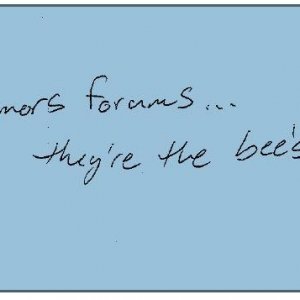 mors forums...
they're the bee's